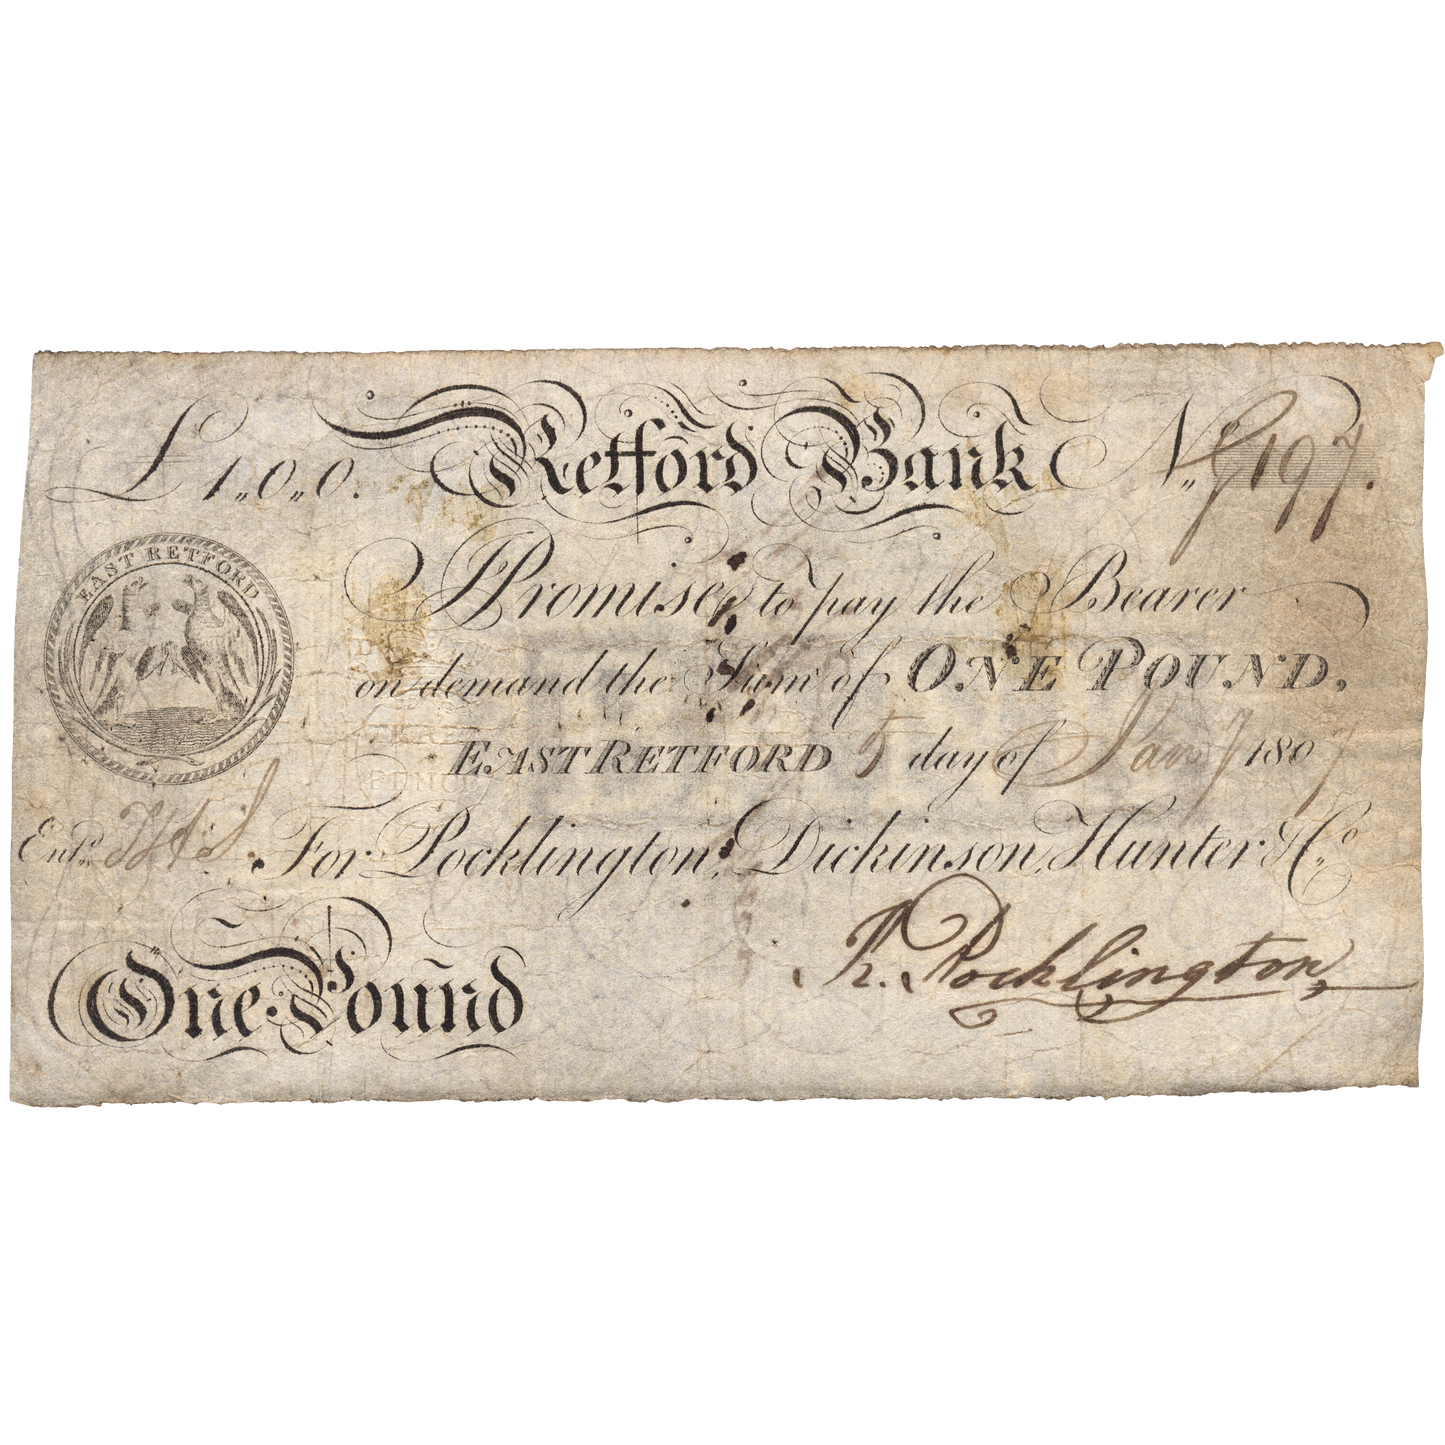 £ 1,,0,,0. Retford Bank No 9197.
EAST RETFORD
I Promise to pay the Bearer
on demand the Sum of ONE POUND,
EAST RETFORD 5 day of Jany 1807
Entd. For Pocklington, Dickinson, Hunter & Co
R. Pocklington
One Pound